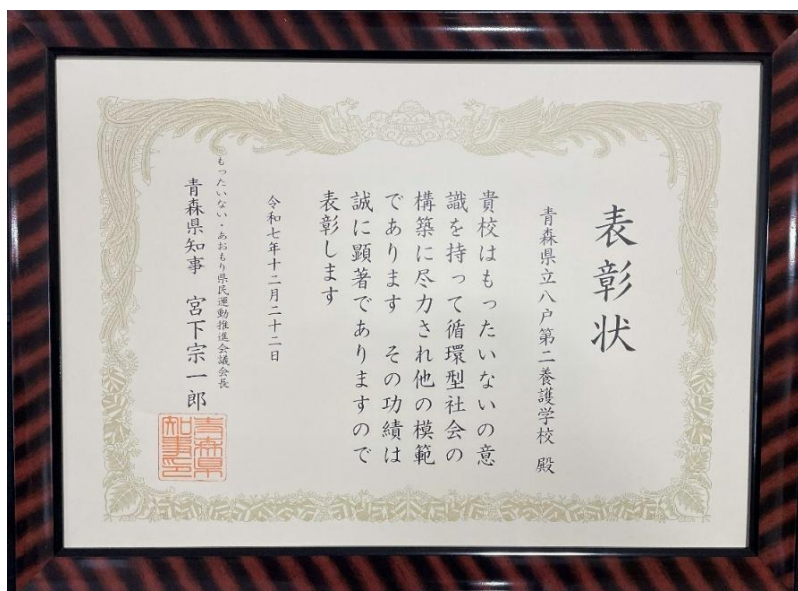 表彰状
青森県立八戸第二養護学校 殿
貴校はもったいないの意
識を持って循環型社会の
構築に尽力され他の模範
であります その功績は
誠に顕著でありますので
表彰します
令和七年十二月二十二日
もったいない・あおもり県民運動推進会議会長
青森県知事 宮下宗一郎
青森県
知事之印